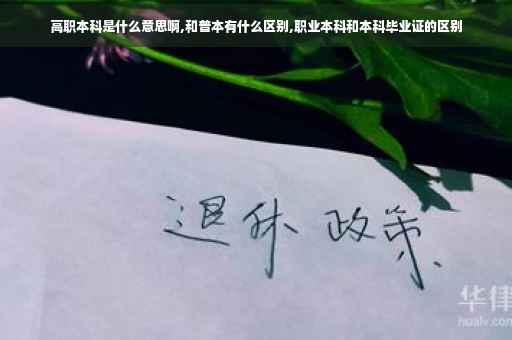 高职本科是什么意思啊,和普本有什么区别,职业本科和本科毕业证的区别
退休 政策
华律
hualv.com